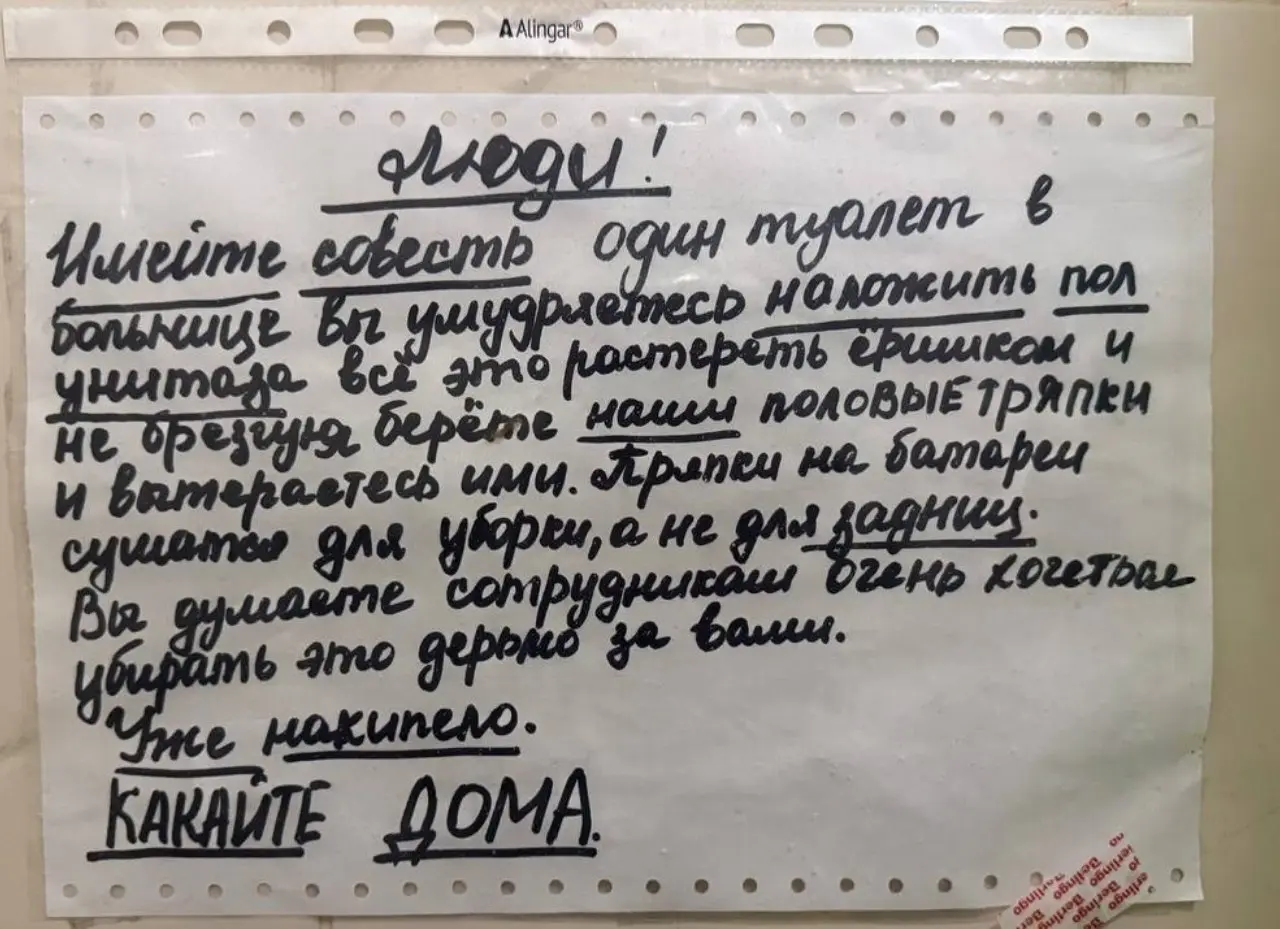 Alingar®
Люди!
Имейте совесть один туалет в
больнице вы умудряетесь наложить пол
унитаза всё это растереть ёршиком и
не брезгуя берёте наши половые тряпки
и вытераетесь ими. Тряпки на батареи
сушатся для уборки, а не для задниц.
Вы думаете сотрудникам очень хочеться
убирать это дерьмо за вами.
Уже накипело.
КАКАЙТЕ ДОМА.
Berlingo
Berlingo
Berlingo